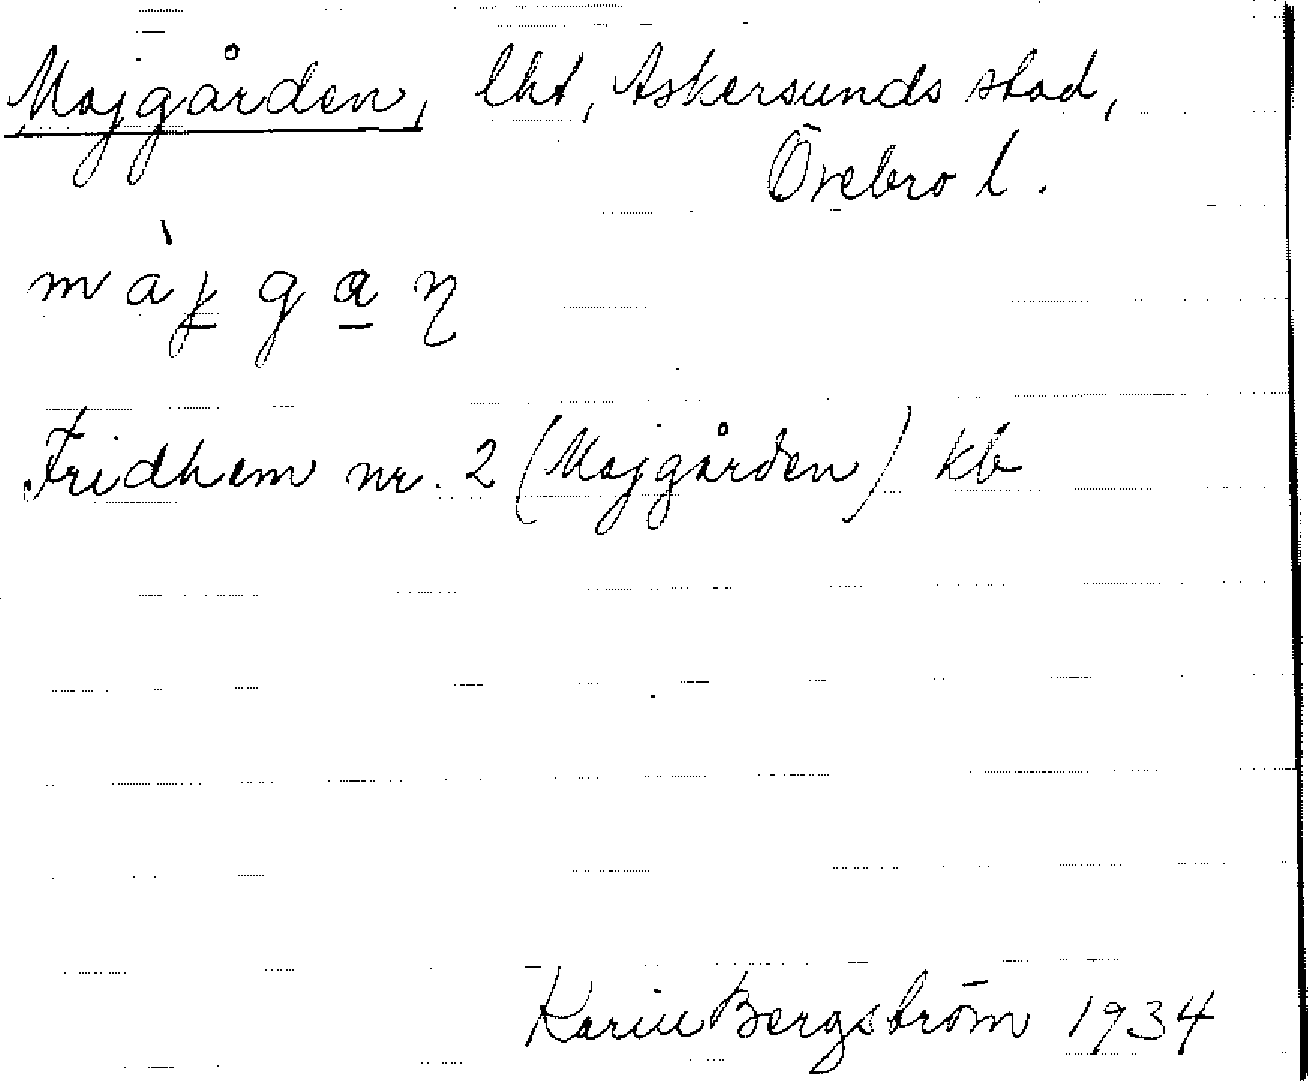 Majgården, lht, Askersunds stad,
Örebro l.
màj̱ga̱ɳ
Fridhem nr. 2 (Majgården) kb
Karin Bergström 1934